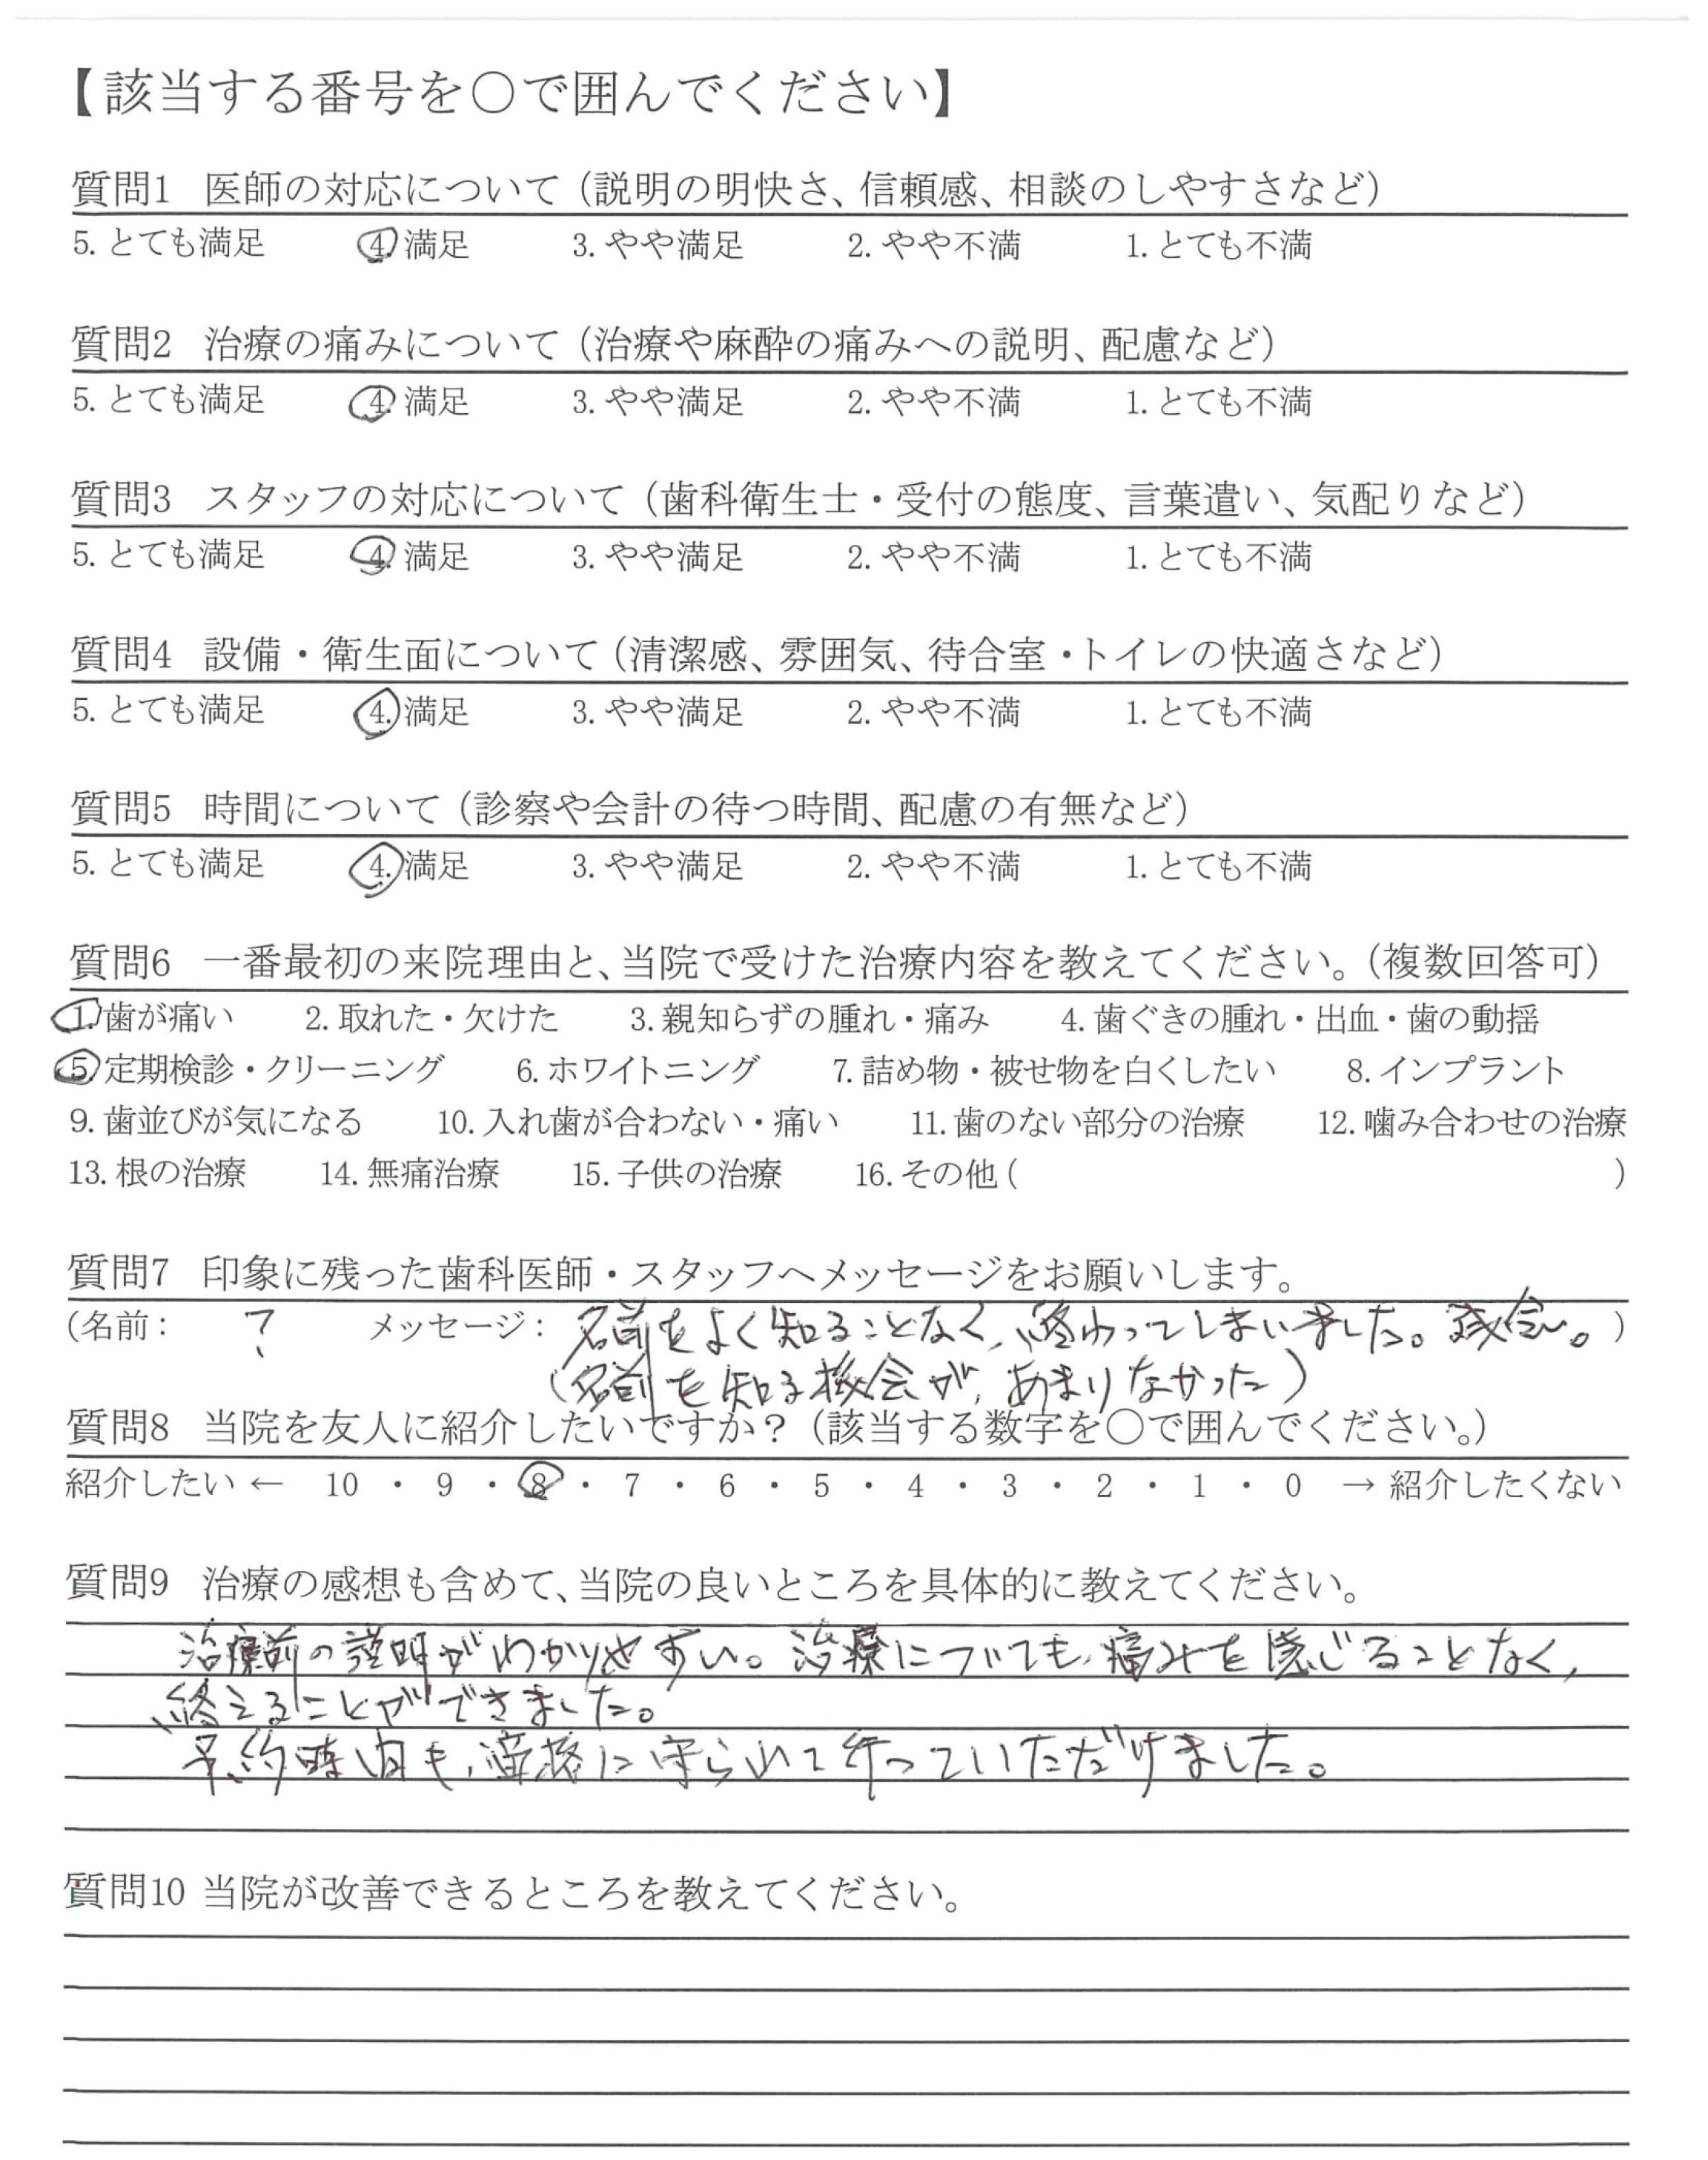 【該当する番号を○で囲んでください】
質問1 医師の対応について（説明の明快さ、信頼感、相談のしやすさなど）
5. とても満足 4. 満足 3. やや満足 2. やや不満 1. とても不満
質問2 治療の痛みについて（治療や麻酔の痛みへの説明、配慮など）
5. とても満足 4. 満足 3. やや満足 2. やや不満 1. とても不満
質問3 スタッフの対応について（歯科衛生士・受付の態度、言葉遣い、気配りなど）
5. とても満足 4. 満足 3. やや満足 2. やや不満 1. とても不満
質問4 設備・衛生面について（清潔感、雰囲気、待合室・トイレの快適さなど）
5. とても満足 4. 満足 3. やや満足 2. やや不満 1. とても不満
質問5 時間について（診察や会計の待つ時間、配慮の有無など）
5. とても満足 4. 満足 3. やや満足 2. やや不満 1. とても不満
質問6 一番最初の来院理由と、当院で受けた治療内容を教えてください。（複数回答可）
1. 歯が痛い 2. 取れた・欠けた 3. 親知らずの腫れ・痛み 4. 歯ぐきの腫れ・出血・歯の動揺
5. 定期検診・クリーニング 6. ホワイトニング 7. 詰め物・被せ物を白くしたい 8. インプラント
9. 歯並びが気になる 10. 入れ歯が合わない・痛い 11. 歯のない部分の治療 12. 噛み合わせの治療
13. 根の治療 14. 無痛治療 15. 子供の治療 16. その他 ( )
質問7 印象に残った歯科医師・スタッフへメッセージをお願いします。
（名前： ? メッセージ： 名前をよく知ることなく、終わってしまいました。残念。）
（名前を知る機会が、あまりなかった）
質問8 当院を友人に紹介したいですか？（該当する数字を○で囲んでください。）
紹介したい ← 10 ・ 9 ・ 8 ・ 7 ・ 6 ・ 5 ・ 4 ・ 3 ・ 2 ・ 1 ・ 0 → 紹介したくない
質問9 治療の感想も含めて、当院の良いところを具体的に教えてください。
治療前の説明がわかりやすい。治療についても、痛みを感じることなく、
終えることができました。
予約時間も、に守られて行っていただけました。
質問10 当院が改善できるところを教えてください。